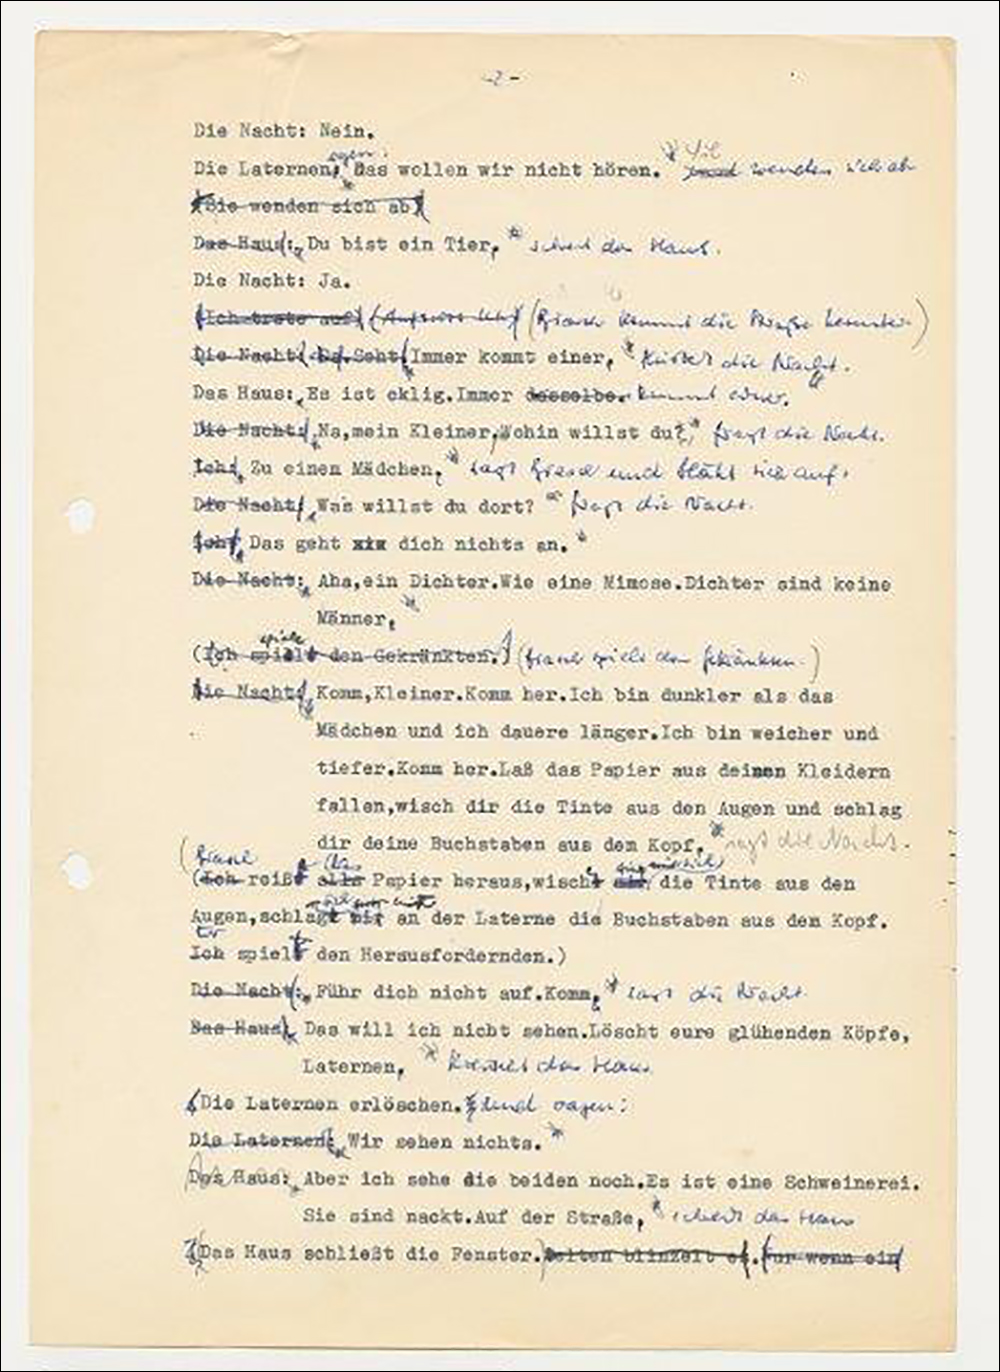 -2-
Die Nacht: Nein.
Die Laternen sagen: Das wollen wir nicht hören. und wenden sich ab
(Sie wenden sich ab)
Das Haus: Du bist ein Tier, schreit das Haus.
Die Nacht: Ja.
(Ich trete auf) (kommt die Straße herunter.)
Die Nacht: Da. Seht. Immer kommt einer, die Nacht.
Das Haus: Es ist eklig.Immer dasselbe. kommt einer.
Die Nacht: Na,mein Kleiner,Wohin willst du?, fragt die Nacht.
Ich: Zu einem Mädchen, sagt und bläht sich auf.
Die Nacht: Was willst du dort? fragt die Nacht.
Ich: Das geht xix dich nichts an.
Die Nacht: Aha,ein Dichter.Wie eine Mimose.Dichter sind keine
Männer,
(Ich spiele den Gekränkten.) ( spielt den Gekränkten.)
Die Nacht: Komm,Kleiner.Komm her.Ich bin dunkler als das
Mädchen und ich dauere länger.Ich bin weicher und
tiefer.Komm her.Laß das Papier aus deinen Kleidern
fallen,wisch dir die Tinte aus den Augen und schlag
dir deine Buchstaben aus dem Kopf, sagt die Nacht.
(Ich reißt alle das Papier heraus,wischt mir die Tinte aus den
Augen,schlagt mir an der Laterne die Buchstaben aus dem Kopf.
Ich Er spielt den Herausfordernden.)
Die Nacht: Führ dich nicht auf.Komm, sagt die Nacht.
Das Haus: Das will ich nicht sehen.Löscht eure glühenden Köpfe,
Laternen, das Haus
(Die Laternen erlöschen. und sagen:
Die Laternen: Wir sehen nichts.
Das Haus: Aber ich sehe die beiden noch.Es ist eine Schweinerei.
Sie sind nackt.Auf der Straße, schreit das Haus
(Das Haus schließt die Fenster.) Selten blinzelt es. Nur wenn ein